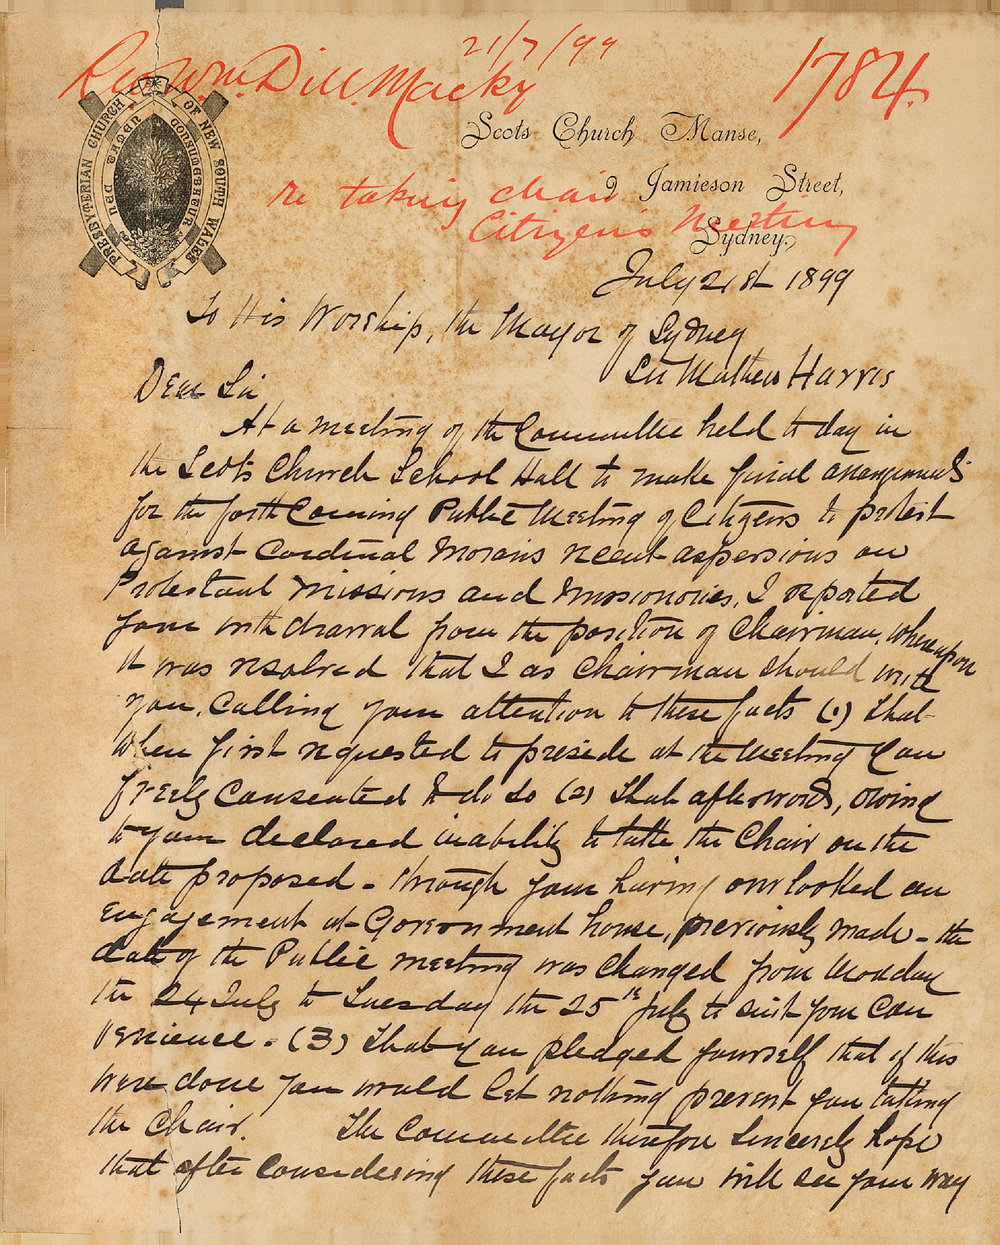 21/7/99
Rev Wm. Dill. Macky
1784.
PRESBYTERIAN CHURCH OF NEW SOUTH WALES
NEC TAMEN CONSUMEBATUR
Scots Church Manse,
re taking chair
9 Jamieson Street,
Citizens Meeting
Sydney,
July 21st 1899
To His Worship, the Mayor of Sydney
Sir Mathew Harris
Dear Sir
At a meeting of the Committee held to day in
the Scots Church School Hall to make final arrangements
for the forth Coming Public Meeting of Citizens to protest
against Cardinal Moran's recent aspersions on
Protestant missions and missionaries, I reported
your withdrawal from the position of Chairman, whereupon
it was resolved that I as Chairman should write
you, Calling your attention to these facts (1.) That
when first requested to preside at the Meeting you
freely consented to do so (2) That afterwards, owing
to your declared inability to take the Chair on the
date proposed - through your having overlooked an
engagement at Government house, previously made - the
date of the Public meeting was changed from Monday
the 24 July to Tuesday the 25th July to suit your Con
venience. (3) That you pledged yourself that if this
were done you would let nothing prevent you taking
the Chair. The Committee therefore sincerely hope
that after considering these facts you will see your way